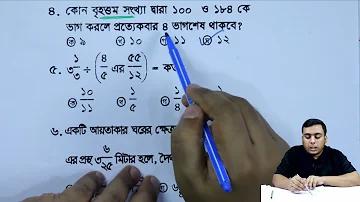 ৪. কোন বৃহত্তম সংখ্যা দ্বারা ১০০ ও ১৮৪ কে
ভাগ করলে প্রত্যেকবার ৪ ভাগশেষ থাকবে?
ক ৯ খ ১০ গ ১১ ঘ ১২
৫. ৩ ১/৩ ÷ (৪/৫ এর ৫৫/১২) =
ক ১০/১১ খ ১/৫
৬. একটি আয়তাকার ঘরের ক্ষেত্র
এর প্রস্থ ৩ ৬/২৫ মিটার হলে, দৈর্